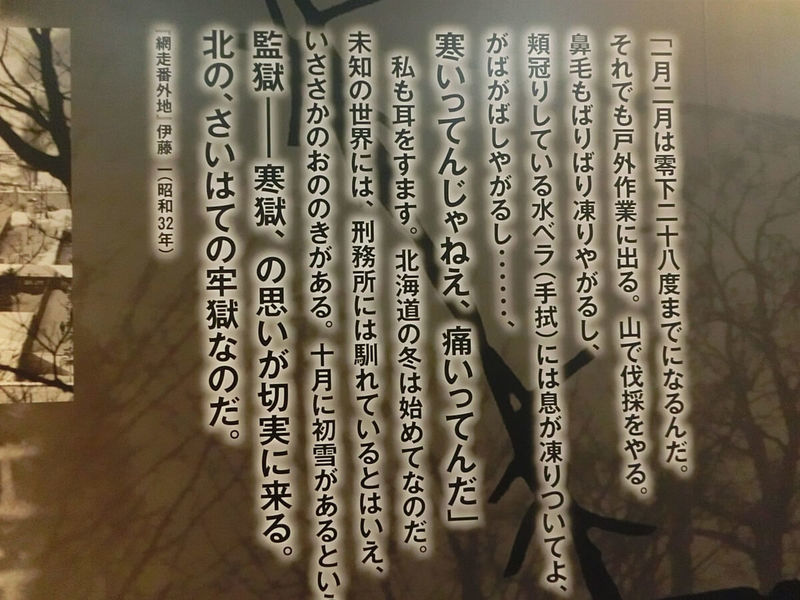 「一月二月は零下二十八度までになるんだ。
それでも戸外作業に出る。山で伐採をやる。
鼻毛もばりばり凍りやがるし、
頬冠りしている水ベラ（手拭）には息が凍りついてよ、
がばがばしやがるし……、
寒いってんじゃねえ、痛いってんだ」
私も耳をすます。北海道の冬は始めてなのだ。
未知の世界には、刑務所には馴れているとはいえ、
いささかのおののきがある。十月に初雪があるとい
監獄――寒獄、の思いが切実に来る。
北の、さいはての牢獄なのだ。
『網走番外地』伊藤 一（昭和32年）